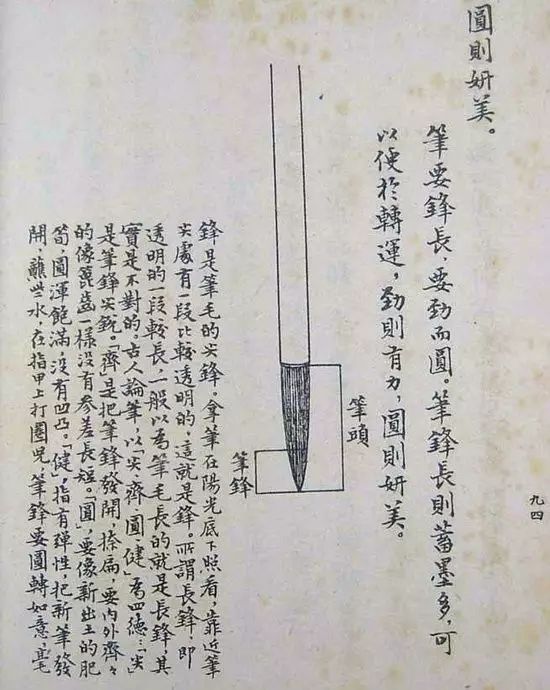 圓則妍美。
筆要鋒長、要勁而圓。筆鋒長則蓄墨多，可
以便於轉運，勁則有力，圓則妍美。
九四
筆頭
筆鋒
鋒是筆毛的尖鋒。拿筆在陽光底下照看，靠近筆
尖處有一段比較透明的，這就是鋒。所謂長鋒，即
透明的一段較長，一般以為筆毛長的就是長鋒，其
實是不對的。古人論筆，以「尖、齊、圓、健」為四德：「尖」
是筆鋒尖銳。「齊」是把筆鋒發開，捺扁，要內外齊々
的像篦齒一樣沒有參差長短。「圓」要像新出土的肥
筍，圓渾飽滿，沒有凹凸。「健」指有彈性，把新筆發
開，蘸些水，在指甲上打圈兒，筆鋒要圓轉如意，毫